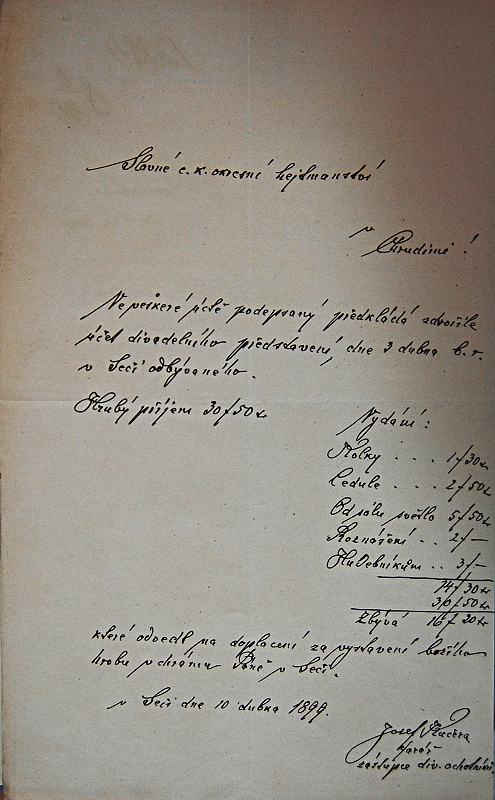 Slavné c. k. okresní hejtmanství
v
Chrudimi!
Ve veškeré úctě podepsaný předkládá zdvořile
účet divadelního představení, dne 3 dubna b. r.
v Seči odbývaného.
Hrubý příjem 30 f 50 kr
Vydání:
Kolky . . . 1 f 30 kr
Cedule . . . 2 f 50 kr
Od sálu světlo 5 f 50 kr
Roznášení . . 2 f —
Hudebníkům . . 3 f —
14 f 30 kr
30 f 50 kr
Zbývá 16 f 20 kr
které odvedl na doplacení za vystavení božího
hrobu v chrámu Páně v Seči.
v Seči dne 10 dubna 1899.
Josef
zástupce div. ochotníků.